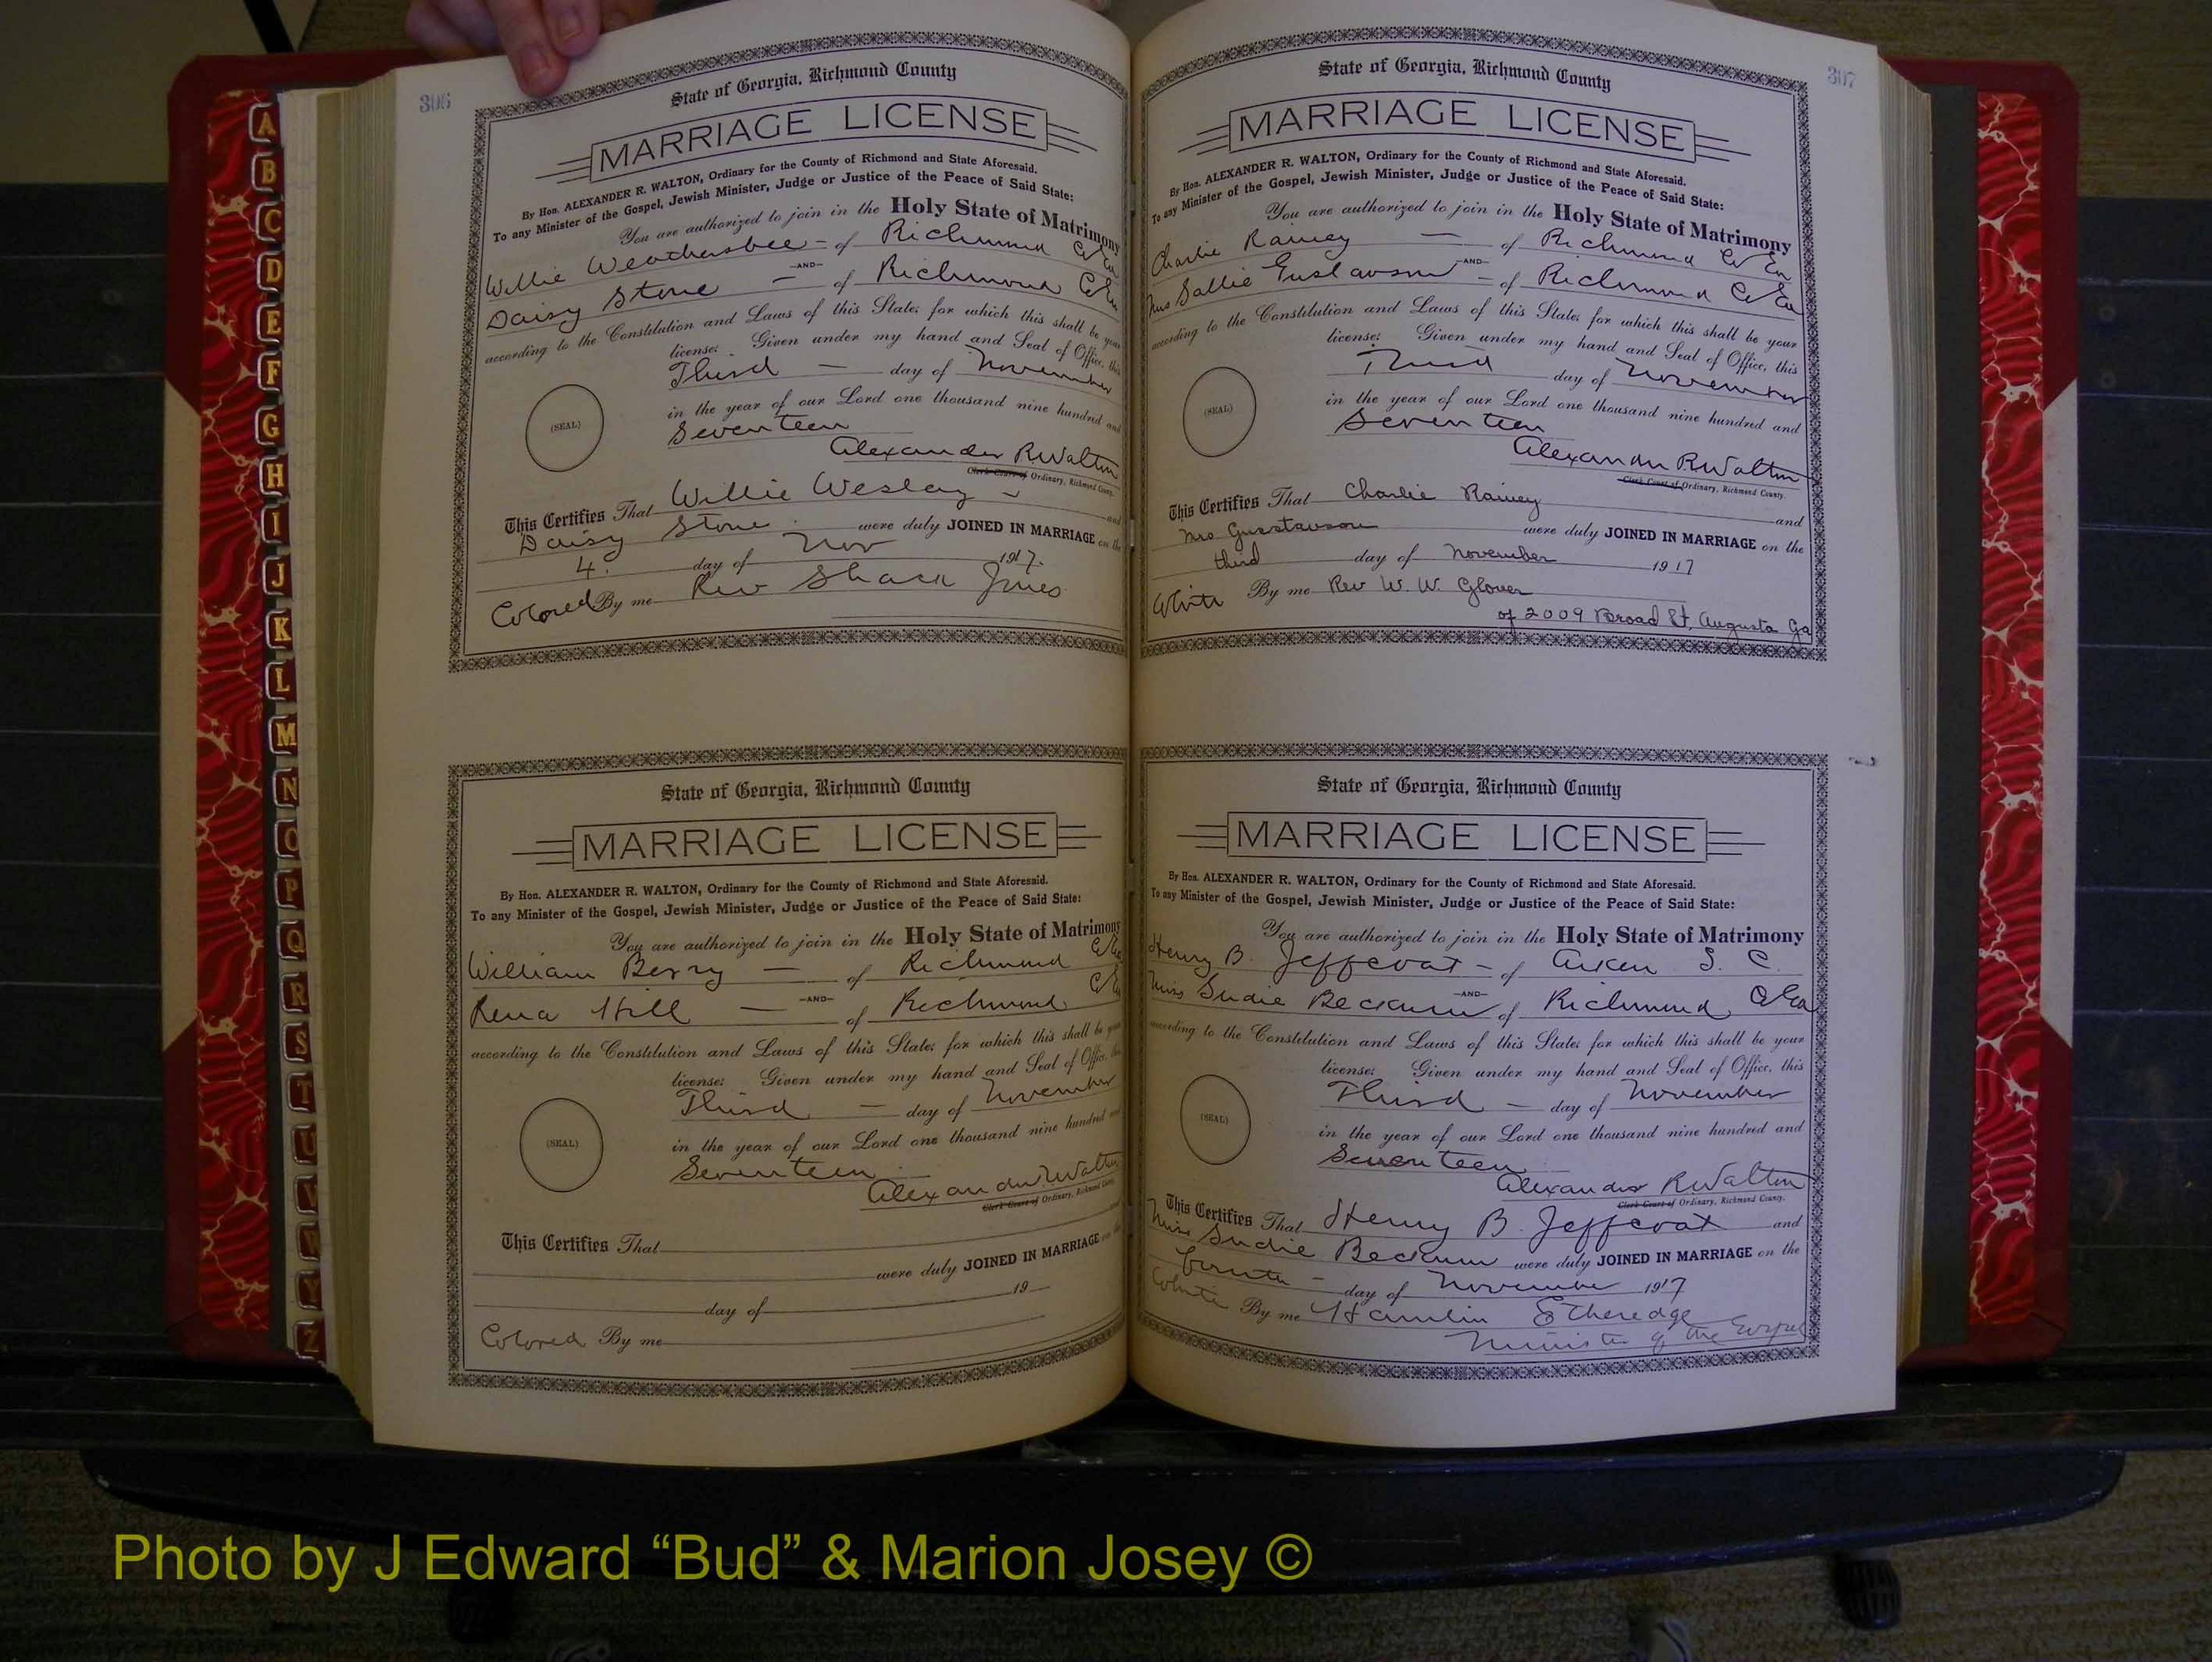 306
State of Georgia, Richmond County
MARRIAGE LICENSE
By Hon. ALEXANDER R. WALTON, Ordinary for the County of Richmond and State Aforesaid.
To any Minister of the Gospel, Jewish Minister, Judge or Justice of the Peace of Said State:
You are authorized to join in the Holy State of Matrimony
Willie Weathersbee - of Richmond Co Ga
-AND-
Daisy Stone - of Richmond Co Ga
according to the Constitution and Laws of this State; for which this shall be your
license: Given under my hand and Seal of Office, this
Third - day of November
in the year of our Lord one thousand nine hundred and
(SEAL)
Seventeen
Alexander R Walton
Clerk Court of Ordinary, Richmond County.
This Certifies That Willie Wesley - and
Daisy Stone were duly JOINED IN MARRIAGE on the
4. day of Nov 1917.
Colored By me Rev Shack Jones
State of Georgia, Richmond County
MARRIAGE LICENSE
By Hon. ALEXANDER R. WALTON, Ordinary for the County of Richmond and State Aforesaid.
To any Minister of the Gospel, Jewish Minister, Judge or Justice of the Peace of Said State:
You are authorized to join in the Holy State of Matrimony
William Berry - of Richmond Co Ga
-AND-
Rena Hill - of Richmond Co Ga
according to the Constitution and Laws of this State; for which this shall be your
license: Given under my hand and Seal of Office, this
Third - day of November
in the year of our Lord one thousand nine hundred and
(SEAL)
Seventeen
Alexander R Walton
Clerk Court of Ordinary, Richmond County.
This Certifies That and
were duly JOINED IN MARRIAGE on the
day of 19
Colored By me
307
State of Georgia, Richmond County
MARRIAGE LICENSE
By Hon. ALEXANDER R. WALTON, Ordinary for the County of Richmond and State Aforesaid.
To any Minister of the Gospel, Jewish Minister, Judge or Justice of the Peace of Said State:
You are authorized to join in the Holy State of Matrimony
Charlie Rainey - of Richmond Co Ga
-AND-
Mrs Sallie Gustavson - of Richmond Co Ga
according to the Constitution and Laws of this State; for which this shall be your
license: Given under my hand and Seal of Office, this
Third day of November
in the year of our Lord one thousand nine hundred and
(SEAL)
Seventeen
Alexander R Walton
Clerk Court of Ordinary, Richmond County.
This Certifies That Charlie Rainey and
Mrs Gusstavson were duly JOINED IN MARRIAGE on the
third day of November 1917
White By me Rev W. W. Glover
of 2009 Broad St, Augusta Ga
State of Georgia, Richmond County
MARRIAGE LICENSE
By Hon. ALEXANDER R. WALTON, Ordinary for the County of Richmond and State Aforesaid.
To any Minister of the Gospel, Jewish Minister, Judge or Justice of the Peace of Said State:
You are authorized to join in the Holy State of Matrimony
Henry B. Jeffcoat - of Aiken S. C.
-AND-
Miss Sudie Beckum of Richmond Co Ga
according to the Constitution and Laws of this State; for which this shall be your
license: Given under my hand and Seal of Office, this
Third - day of November
in the year of our Lord one thousand nine hundred and
(SEAL)
Seventeen
Alexander R Walton
Clerk Court of Ordinary, Richmond County.
This Certifies That Henry B. Jeffcoat and
Miss Sudie Beckum were duly JOINED IN MARRIAGE on the
fourth - day of November 1917
White By me Hamlin Etheredge
Minister of the Gospel
A
B
C
D
E
F
G
H
I
J
K
L
M
N
O
P
Q
R
S
T
U
V
W
Y
Z
Photo by J Edward “Bud” & Marion Josey ©